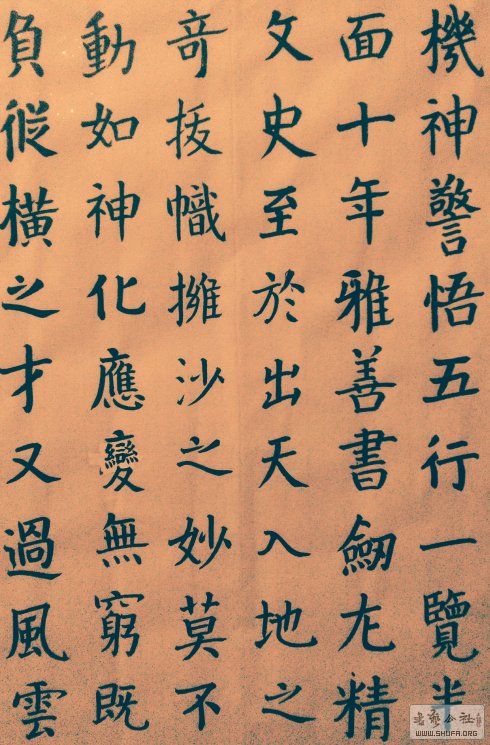 機神警悟五行一覽半
面十年雅善書劒尤精
文史至於出天入地之
竒拔幟擁沙之妙莫不
動如神化應變無窮既
負從橫之才又過風雲
书艺公社
WWW.SHUFA.ORG